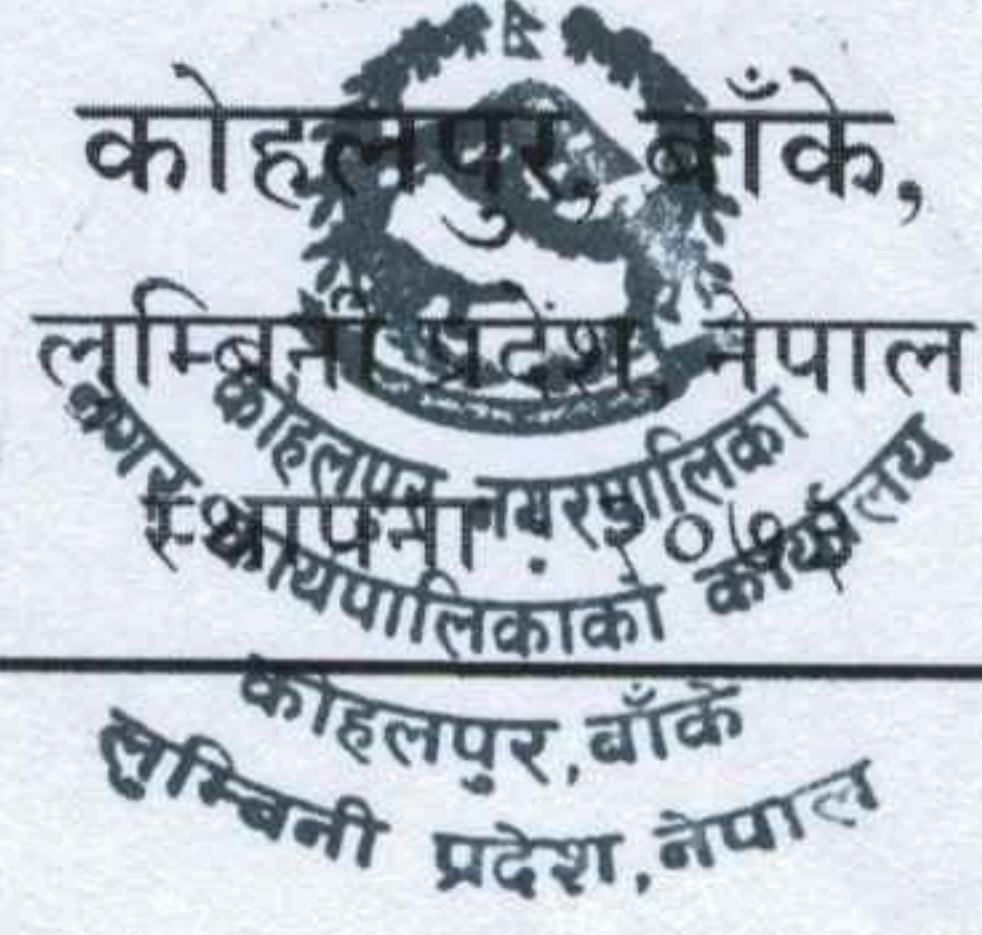 कोहलपुर, बाँके,
लुम्बिनी प्रदेश, नेपाल
कोहलपुर नगरपालिका
स्थापना :
नगर कार्यपालिकाको कार्यालय
कोहलपुर,बाँके
लुम्बिनी प्रदेश,नेपाल